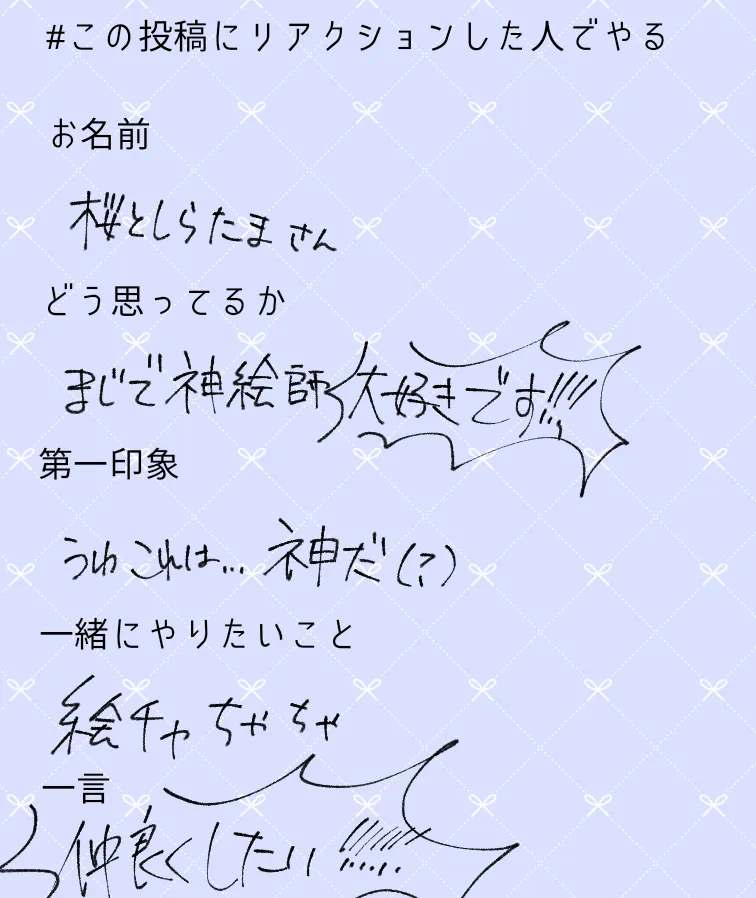 #この投稿にリアクションした人でやる
お名前
桜としらたまさん
どう思ってるか
まじで神絵師大好きです!!!!!
第一印象
うわこれは…神だ(?)
一緒にやりたいこと
絵チャちゃちゃ
一言
仲良くしたい!!!!!